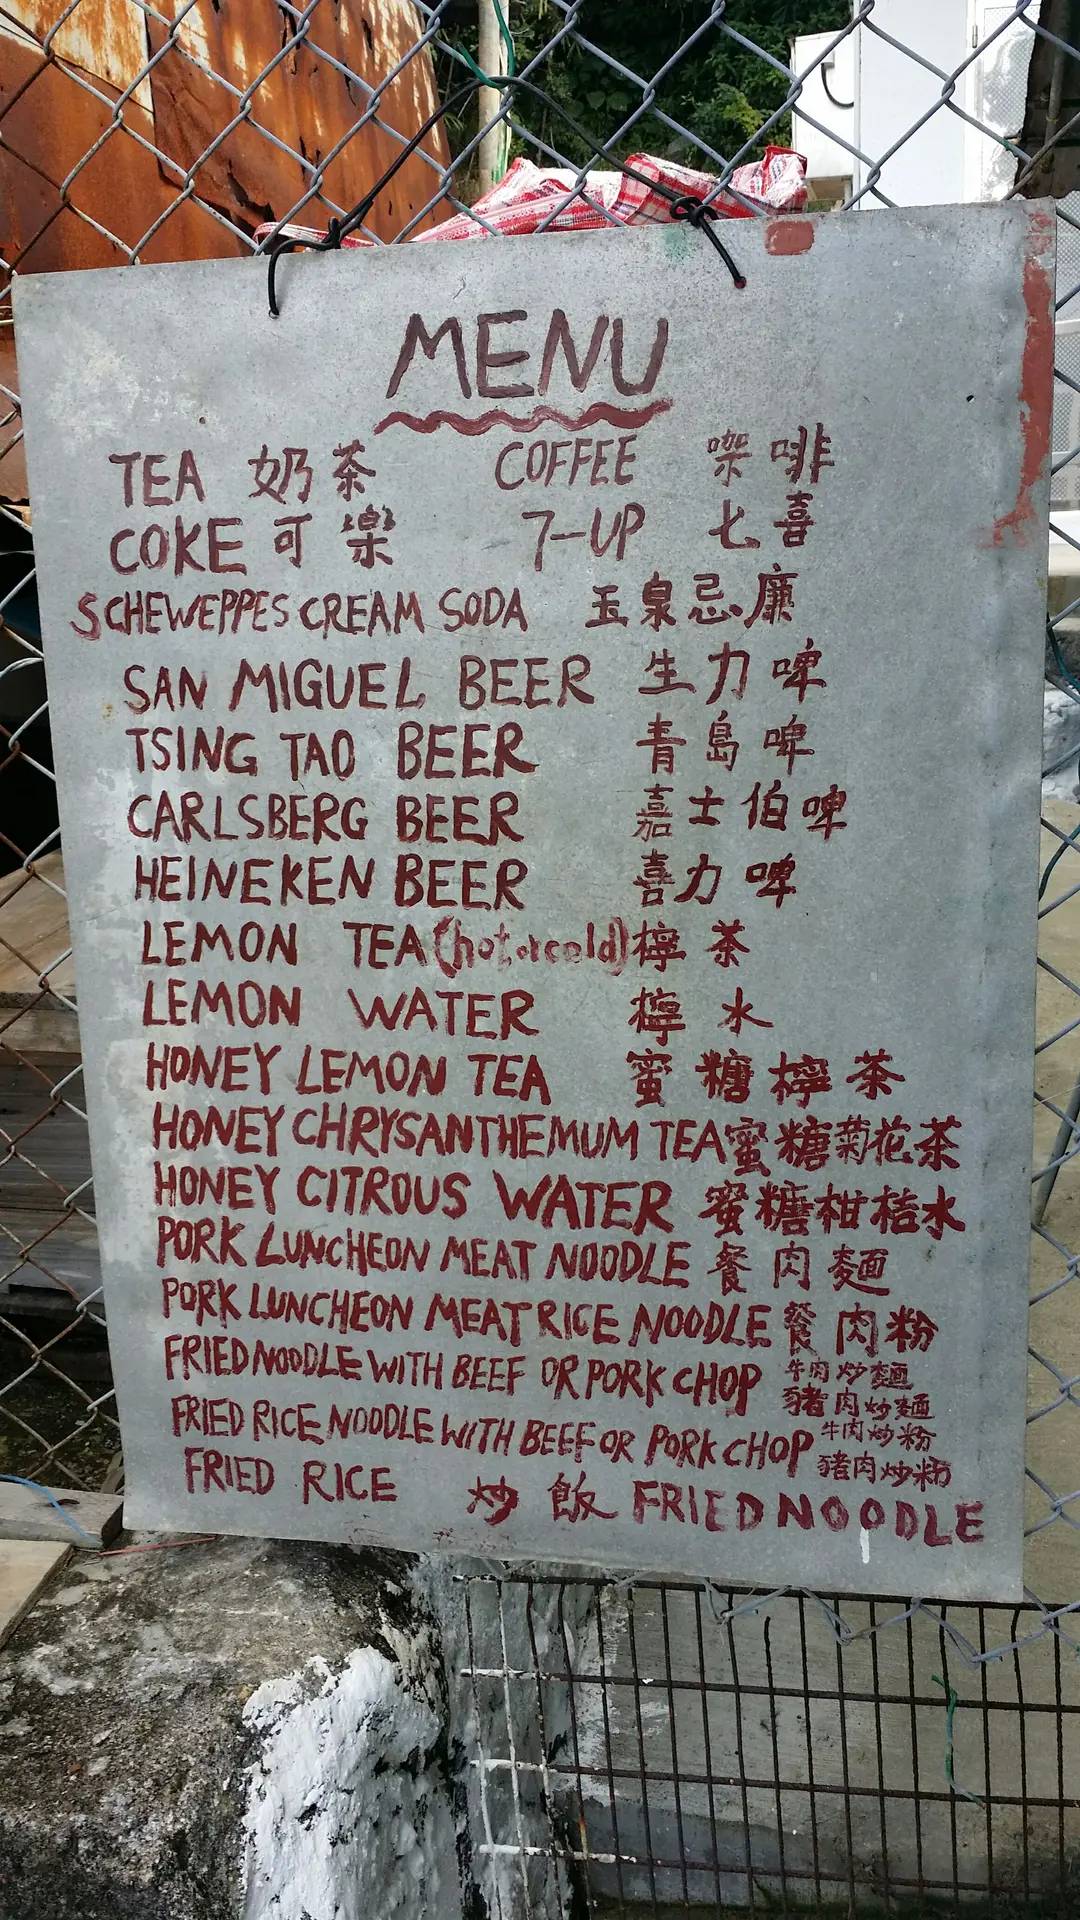 MENU
TEA 奶茶 COFFEE 㗎啡
COKE 可樂 7-UP 七喜
SCHEWEPPES CREAM SODA 玉泉忌廉
SAN MIGUEL BEER 生力啤
TSING TAO BEER 青島啤
CARLSBERG BEER 嘉士伯啤
HEINEKEN BEER 喜力啤
LEMON TEA (hot or cold) 檸茶
LEMON WATER 檸水
HONEY LEMON TEA 蜜糖檸茶
HONEY CHRYSANTHEMUM TEA 蜜糖菊花茶
HONEY CITROUS WATER 蜜糖柑桔水
PORK LUNCHEON MEAT NOODLE 餐肉麵
PORK LUNCHEON MEAT RICE NOODLE 餐肉粉
FRIED NOODLE WITH BEEF OR PORK CHOP 牛肉炒麵
豬肉炒麵
FRIED RICE NOODLE WITH BEEF OR PORK CHOP 牛肉炒粉
豬肉炒粉
FRIED RICE 炒飯 FRIED NOODLE